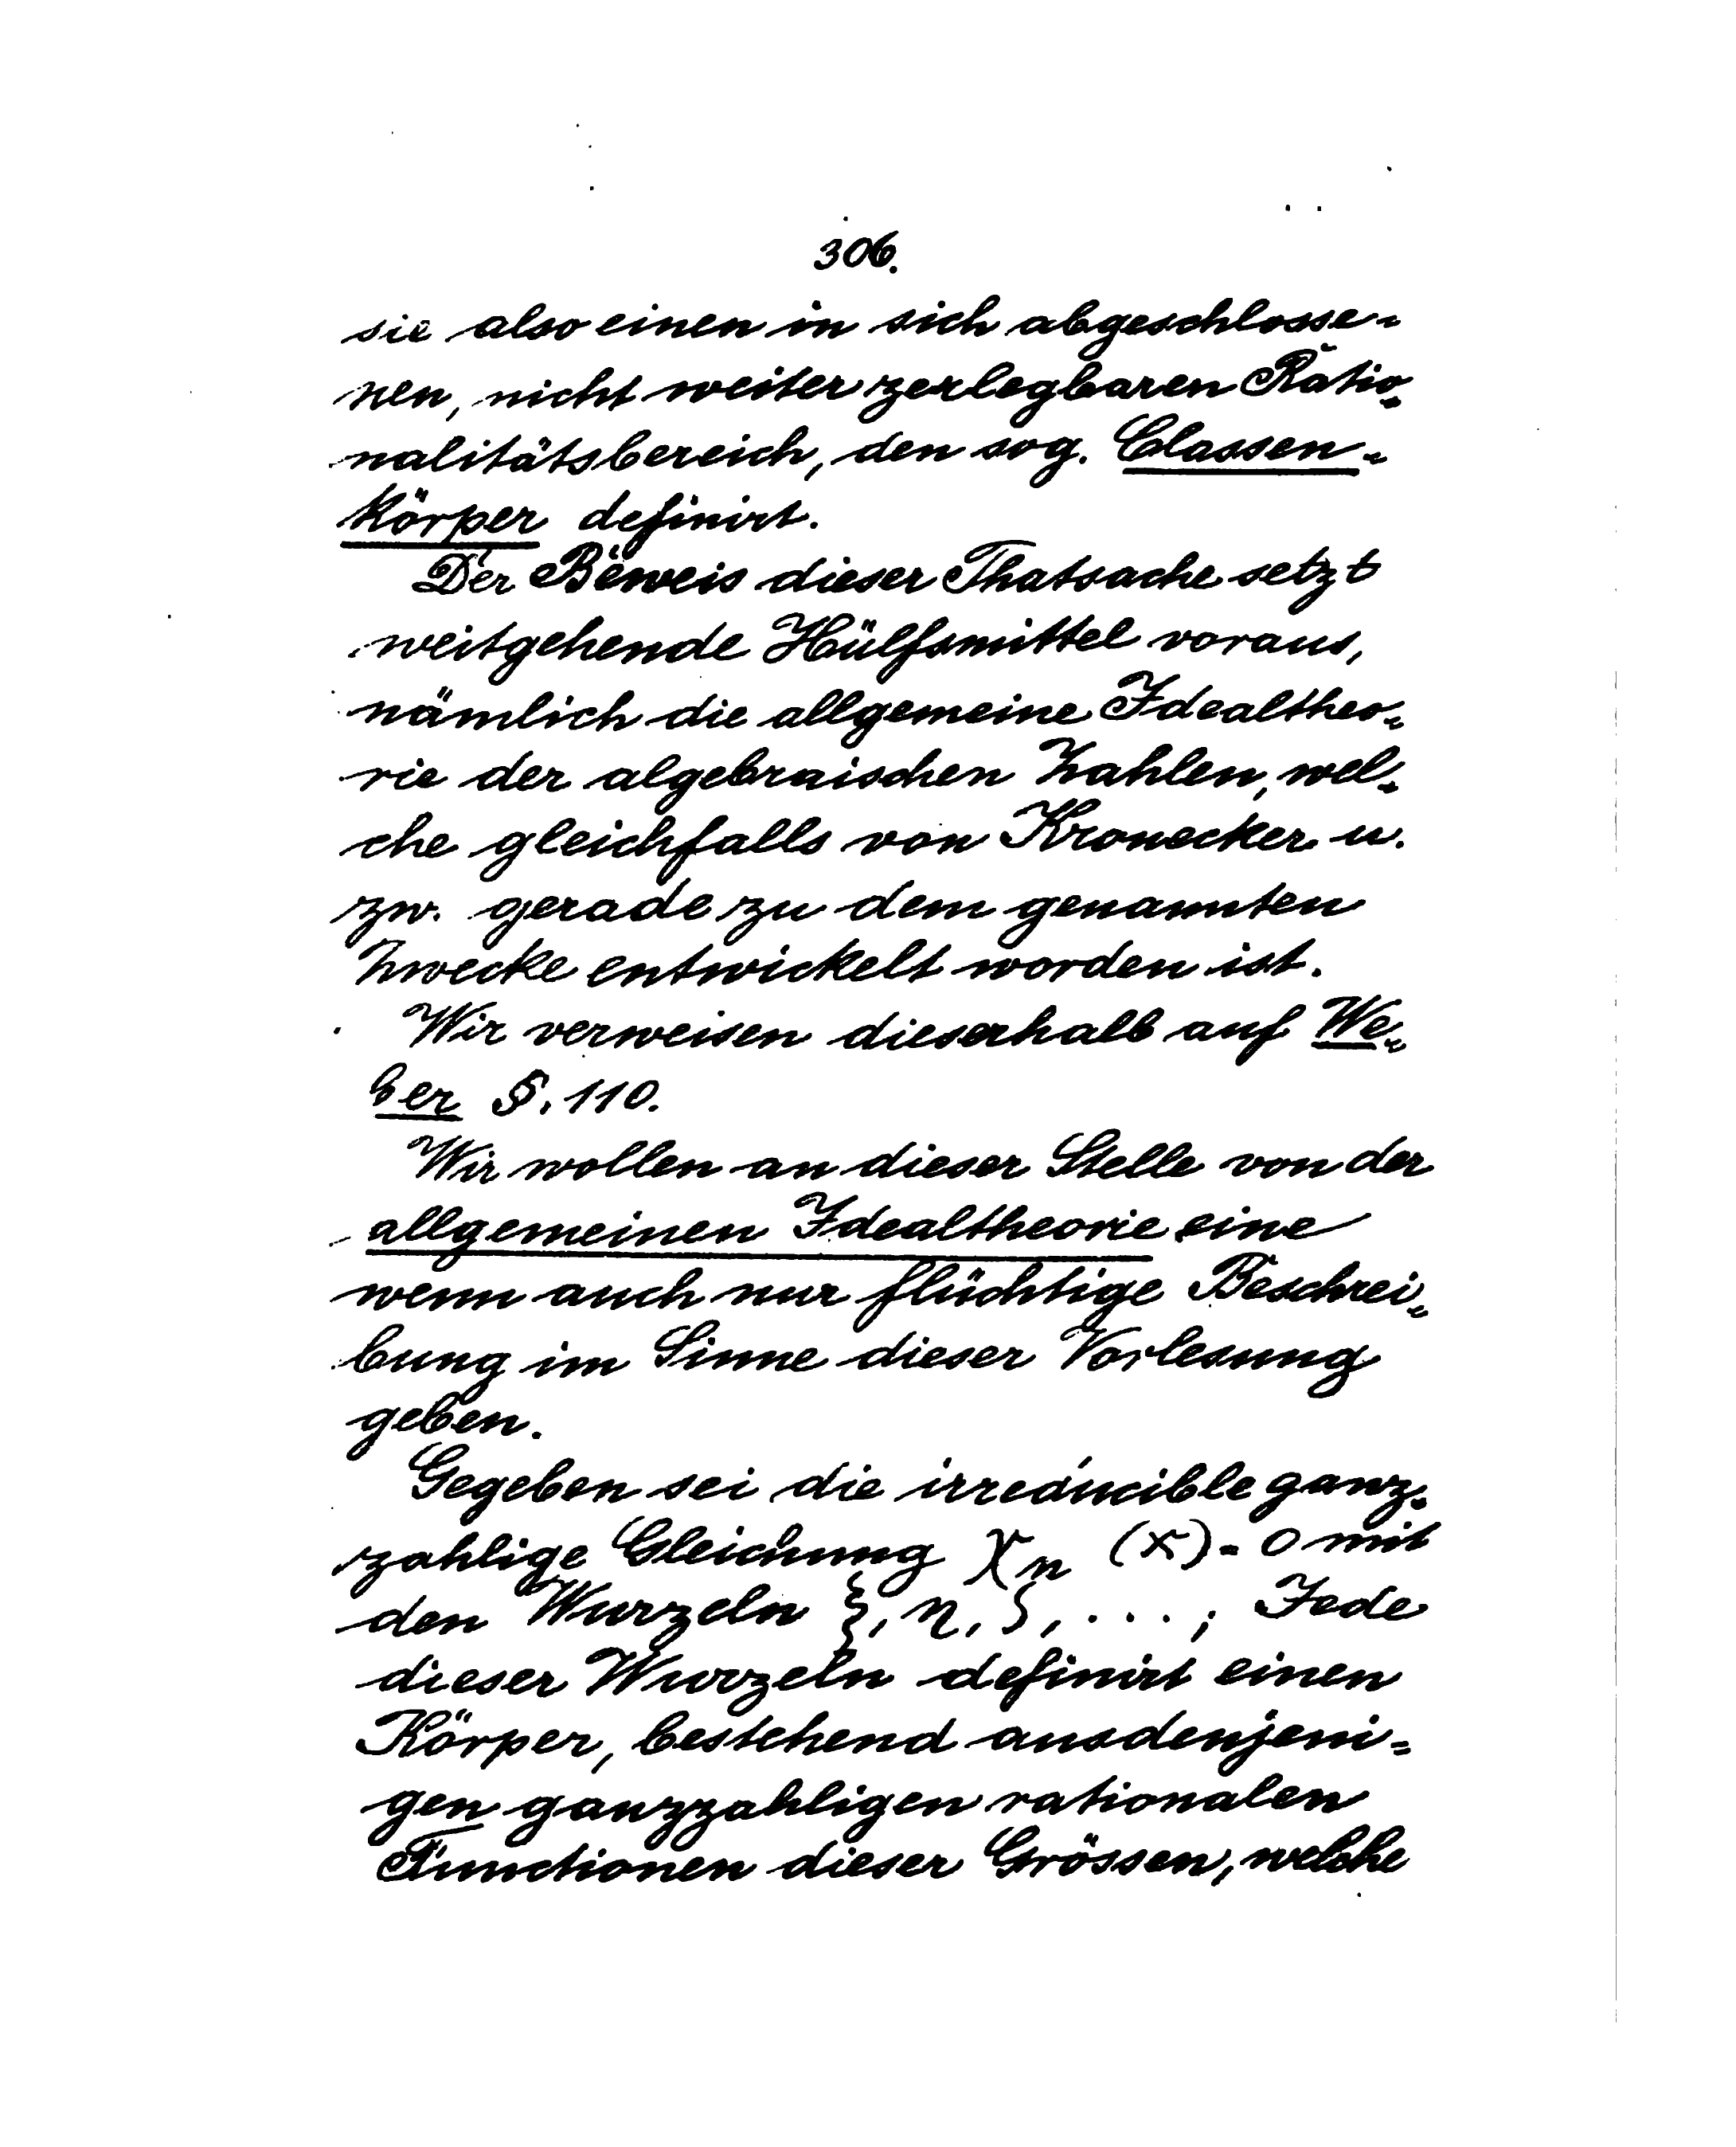 306.
sie also einen in sich abgeschlosse-
nen, nicht weiter zerlegbaren Ratio-
nalitätsbereich, den sog. Classen-
körper definirt.
Der Beweis dieser Thatsache setzt
weitgehende Hülfsmittel voraus,
nämlich die allgemeine Idealtheo-
rie der algebraischen Zahlen, wel-
che gleichfalls von Kronecker u.
zw. gerade zu dem genannten
Zwecke entwickelt worden ist.
Wir verweisen dieserhalb auf We-
ber §. 110.
Wir wollen an dieser Stelle von der
allgemeinen Idealtheorie eine
wenn auch nur flüchtige Beschrei-
bung im Sinne dieser Vorlesung
geben.
Gegeben sei die irreducible ganz-
zahlige Gleichung χn (x) = 0 mit
den Wurzeln ξ, η, ζ, ...; Jede
dieser Wurzeln definirt einen
Körper, bestehend aus denjeni-
gen ganzzahligen rationalen
Functionen dieser Grössen, welche